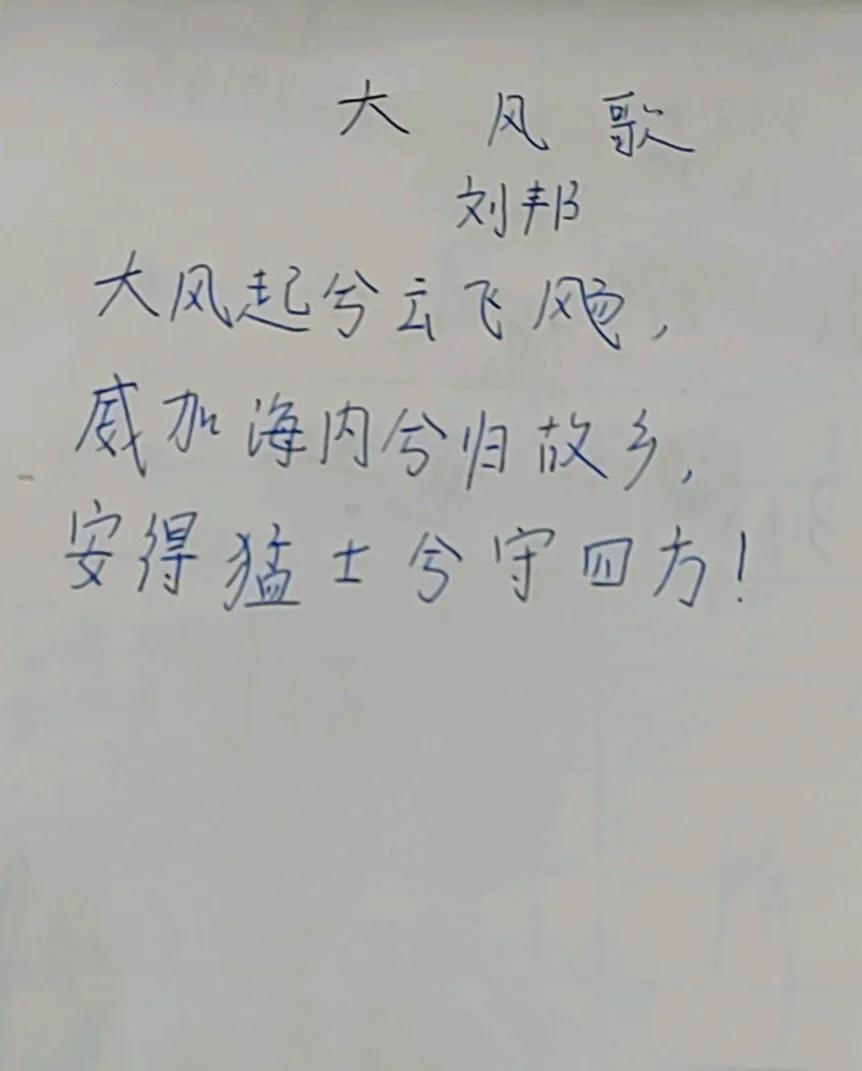 大风歌
刘邦
大风起兮云飞飏，
威加海内兮归故乡，
安得猛士兮守四方！